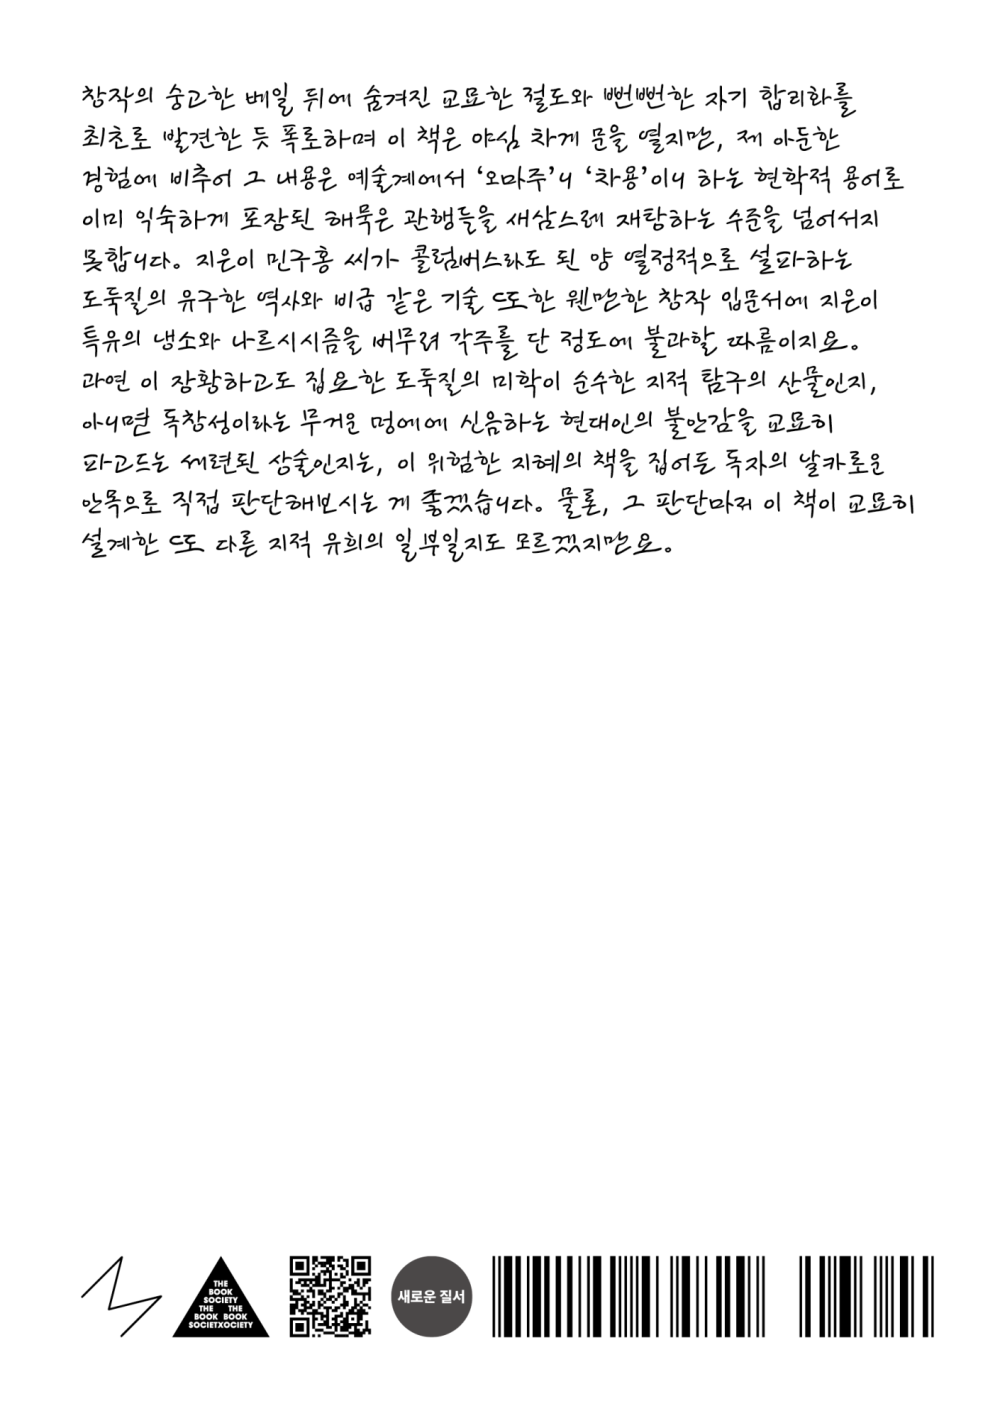 창작의 숭고한 베일 뒤에 숨겨진 교묘한 절도와 뻔뻔한 자기 합리화를
최초로 발견한 듯 폭로하며 이 책은 야심 차게 문을 열지만, 제 아둔한
경험에 비추어 그 내용은 예술계에서 ‘오마주’니 ‘차용’이니 하는 현학적 용어로
이미 익숙하게 포장된 해묵은 관행들을 새삼스레 재탕하는 수준을 넘어서지
못합니다. 지은이 민구홍 씨가 콜럼버스라도 된 양 열정적으로 설파하는
도둑질의 유구한 역사와 비급 같은 기술 또한 웬만한 창작 입문서에 지은이
특유의 냉소와 나르시시즘을 버무려 각주를 단 정도에 불과할 따름이지요.
과연 이 장황하고도 집요한 도둑질의 미학이 순수한 지적 탐구의 산물인지,
아니면 독창성이라는 무거운 멍에에 신음하는 현대인의 불안감을 교묘히
파고드는 세련된 상술인지는, 이 위험한 지혜의 책을 집어든 독자의 날카로운
안목으로 직접 판단해보시는 게 좋겠습니다. 물론, 그 판단마저 이 책이 교묘히
설계한 또 다른 지적 유희의 일부일지도 모르겠지만요.
THE
BOOK
SOCIETY
THE THE
BOOK BOOK
SOCIETXOCIETY
새로운 질서